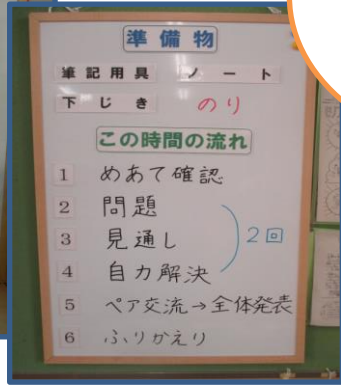 準備物
筆記用具 ノート
下じき のり
この時間の流れ
1 めあて確認
2 問題
3 見通し 2回
4 自力解決
5 ペア交流→全体発表
6 ふりかえり